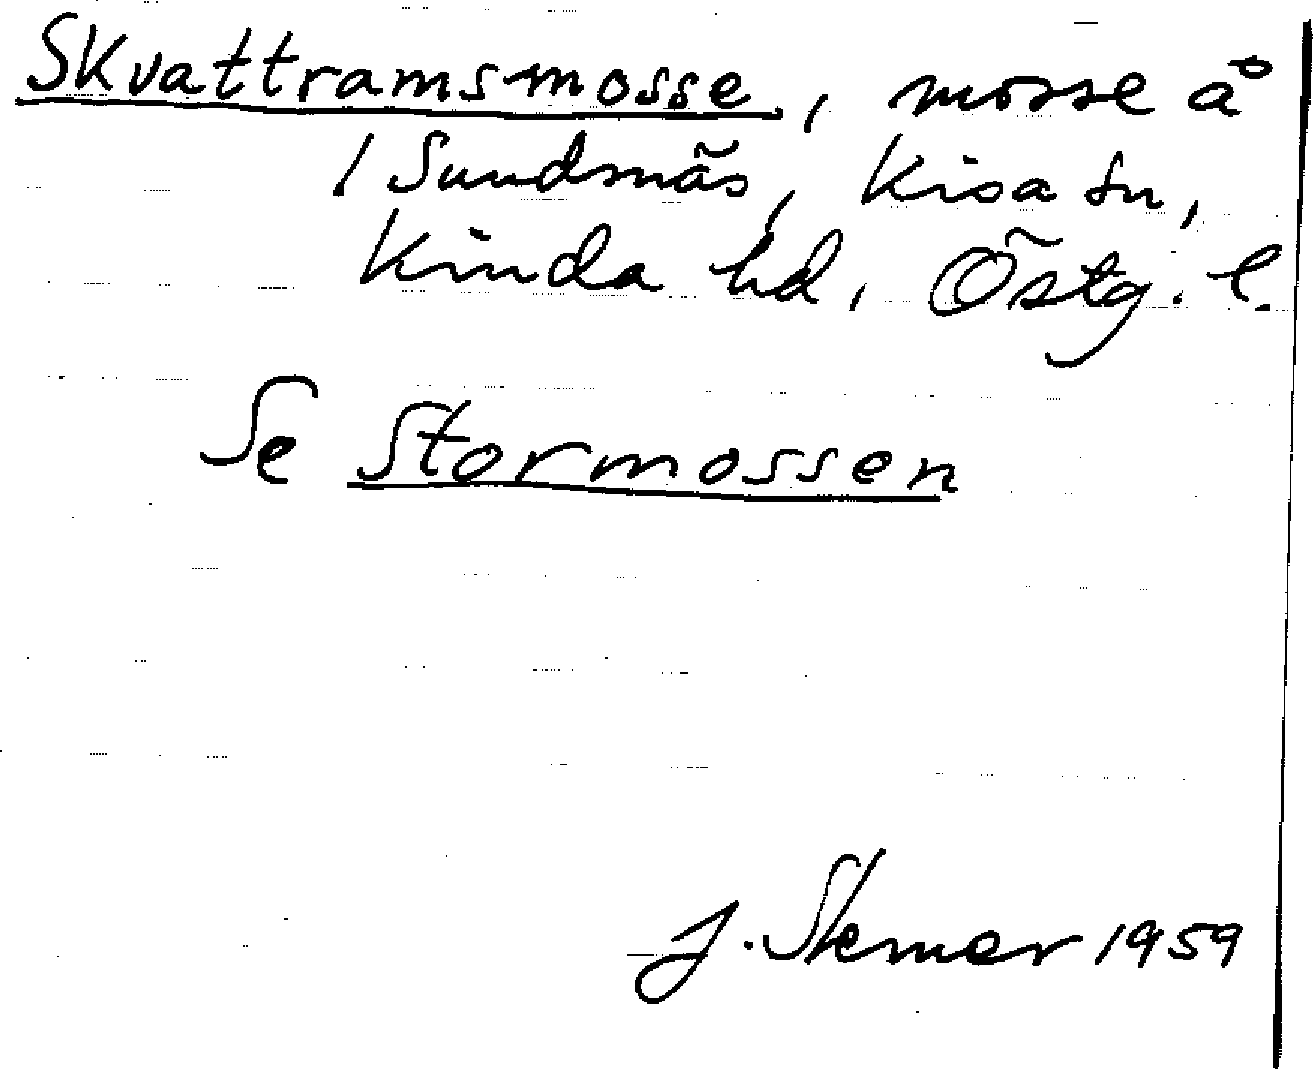 Skvattramsmosse, mosse å
/ Sundsnäs, Kisa sn,
Kinda hd, Östg. l.
Se Stormossen
J. 1959